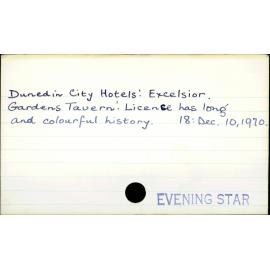 Dunedin City Hotels: Excelsior.
Gardens Tavern: License has long
and colourful history. 18: Dec. 10, 1970.
EVENING STAR